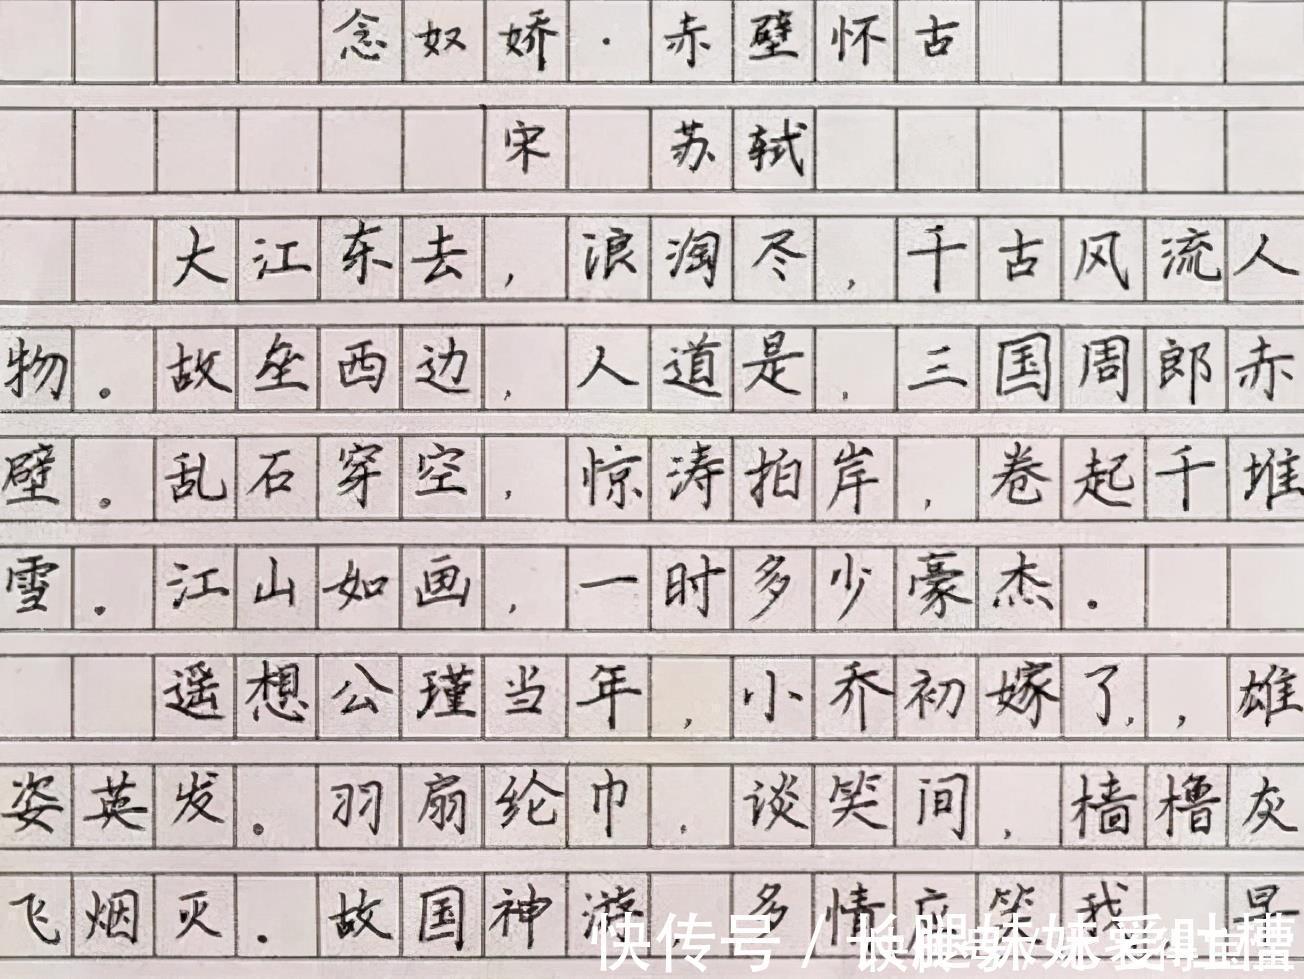 念奴娇·赤壁怀古
宋 苏轼
大江东去,浪淘尽,千古风流人
物。故垒西边,人道是,三国周郎赤
壁。乱石穿空,惊涛拍岸,卷起千堆
雪。江山如画,一时多少豪杰。
遥想公瑾当年,小乔初嫁了,,雄
姿英发。羽扇纶巾,谈笑间,樯橹灰
飞烟灭。故国神游,多情应笑我,早
快传号/长腿妹妹爱吐槽